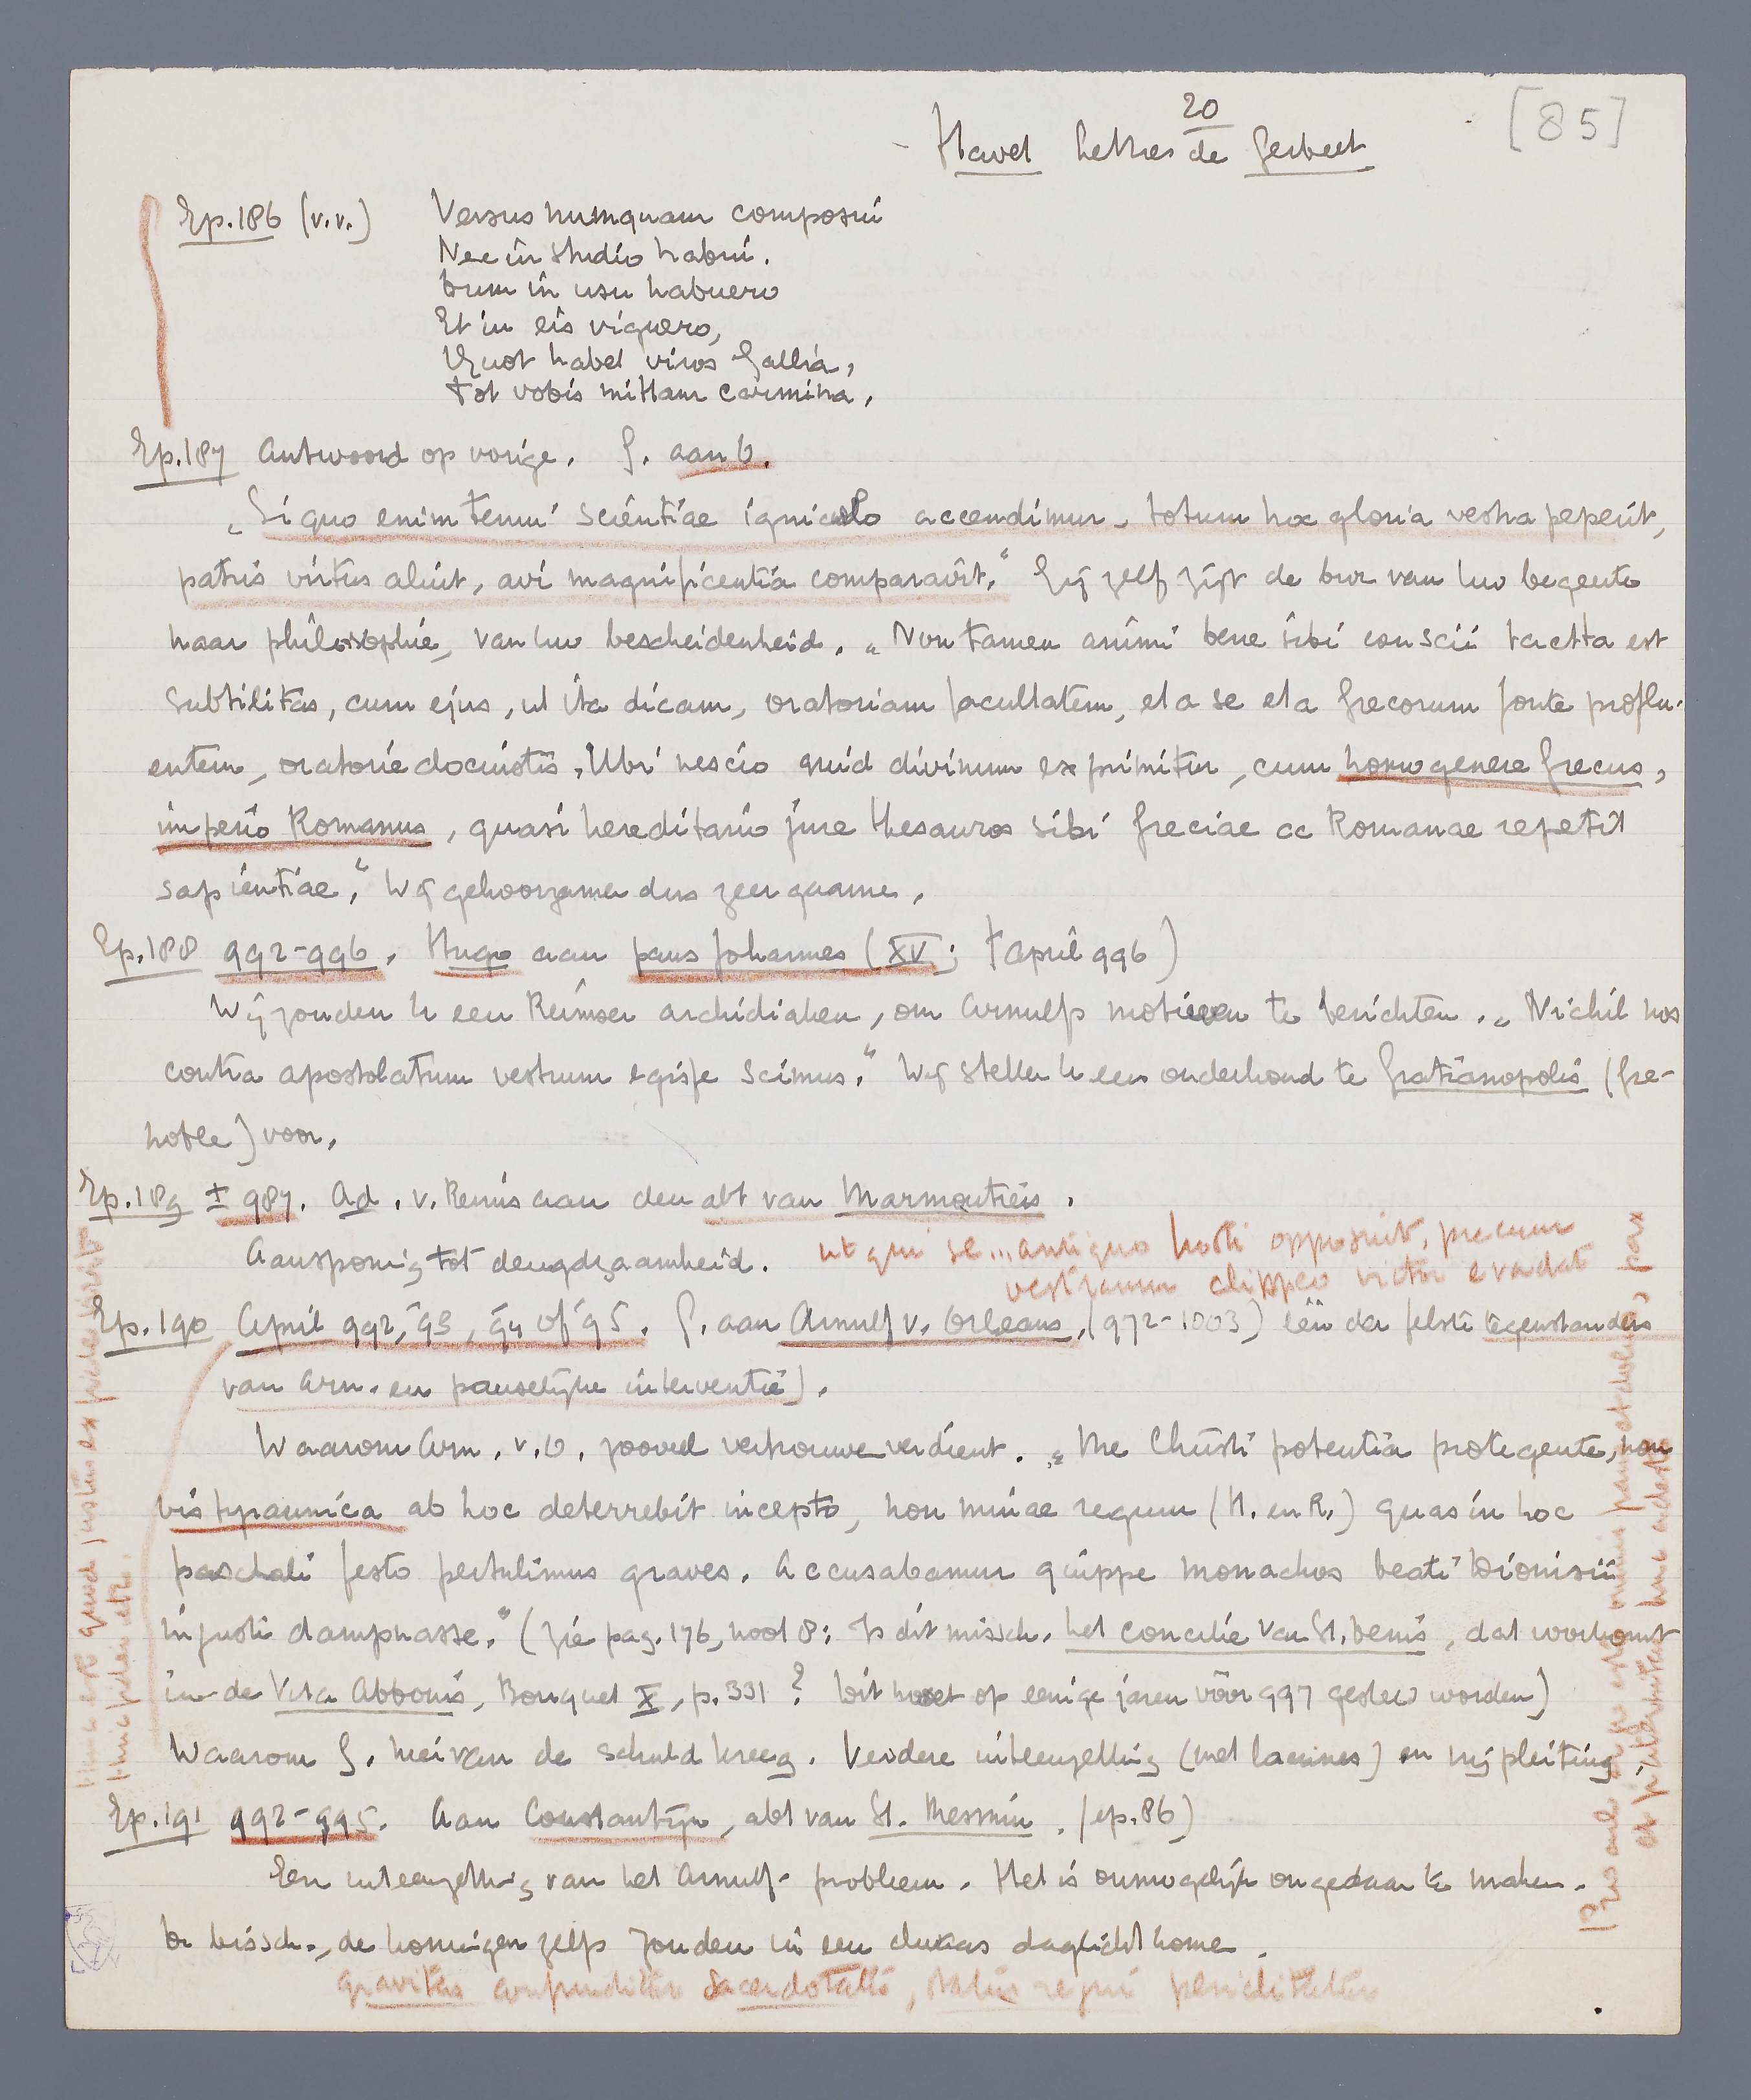 20
[85]
Havet Lettres de Gerbert
Ep. 186 (v.v.) Versus numquam composui
Nec in studio habui.
Dum in usu habuero
Et in eis viguero,
Quot habet viros Gallia,
Tot vobis mittam carmina.
Ep. 187 Antwoord op vorige. G. aan O.
„Si quo enim tenui scientiae igniculo accendimur, totum hoc gloria vestra peperit,
patris virtus aluit, avi magnificentia comparavit." Gij zelf zijt de bron van Uw begeerte
naar philosophie, van Uw bescheidenheid. „Non tamen animi bene sibi conscii tacita est
subtilitas, cum ejus, ut ita dicam, oratoriam facultatem, et a se et a Grecorum fonte proflu-
entem, oratorie docuistis. Ubi nescio quid divinum exprimitur, cum homo genere Grecus,
imperio Romanus, quasi hereditario jure thesauros sibi Greciae ac Romanae repetit
sapientiae." Wij gehoorzamen dus zeer gaarne.
Ep. 188 992-996. Hugo aan paus Johannes (XV; † April 996)
Wij zonden U een Reimser archidiaken, om Arnulfs motieven te berichten. „Nichil nos
contra apostolatum vestrum egisse scimus." Wij stellen U een onderhoud te Gratianopolis (Gre-
noble) voor.
Ep. 189 ± 987. Ad. v. Reims aan den abt van Marmoutiers.
Aansporing tot deugdzaamheid. ut qui se... antiquo hosti opposuit, precum
vestrarum clippeo victor evadat
Ep. 190 April 992, 93, 94 of 95. G. aan Arnulf v. Orleans, (972-1003) één der felste tegenstanders
van Arn. en pauselijke interventie).
Waarom Arn. v. O. zooveel vertrouwen verdient. „Me Christi potentia protegente, non
vis tyrannica ab hoc deterrebit incepto, non minae regum (H. en R.) quas in hoc
paschali festo pertulimus graves. Accusabamur quippe monachos beati Dionisii
injuste dampnasse." (zie pag. 176, noot 8: Is dit missch. het concilie van St. Denis, dat voorkomt
in de Vita Abbonis, Bouquet X, p. 331? Dit moet op eenige jaren vóór 997 gesteld worden)
Waarom G. hiervan de schuld kreeg. Verdere uiteenzetting (met lacunes) en vrijpleiting.
Ep. 191 992-995. Aan Constantijn, abt van St. Mesmin. (ep. 86)
Een uiteenzetting van het Arnulf-probleem. Het is onmogelijk ongedaan te maken.
De bissch., de koningen zelfs zouden in een daglicht komen.
gravitas confunditur sacerdotalis, status regni periclitatur
Hinc est quod justus ex fide vivit